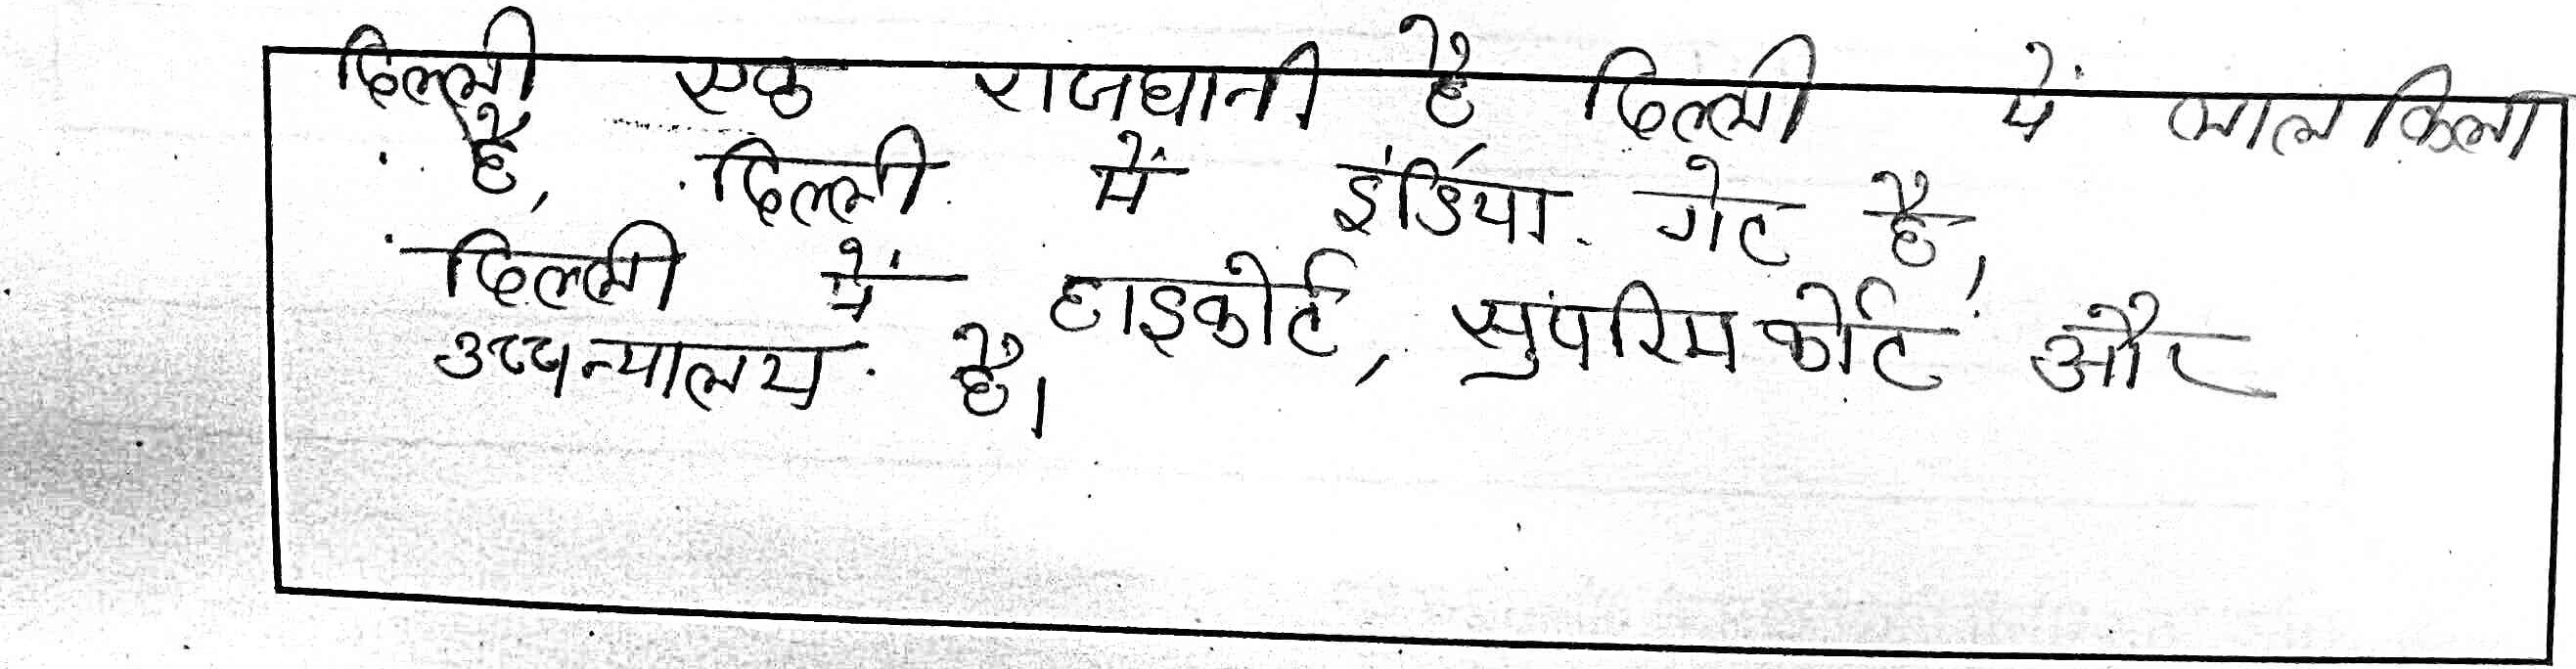 दिल्ली एक राजधानी है दिल्ली में लालकिला
है, दिल्ली में इंडिया गेट है,
दिल्ली में हाइकोर्ट, सुपरिमकोर्ट और
उच्चन्यालय है।